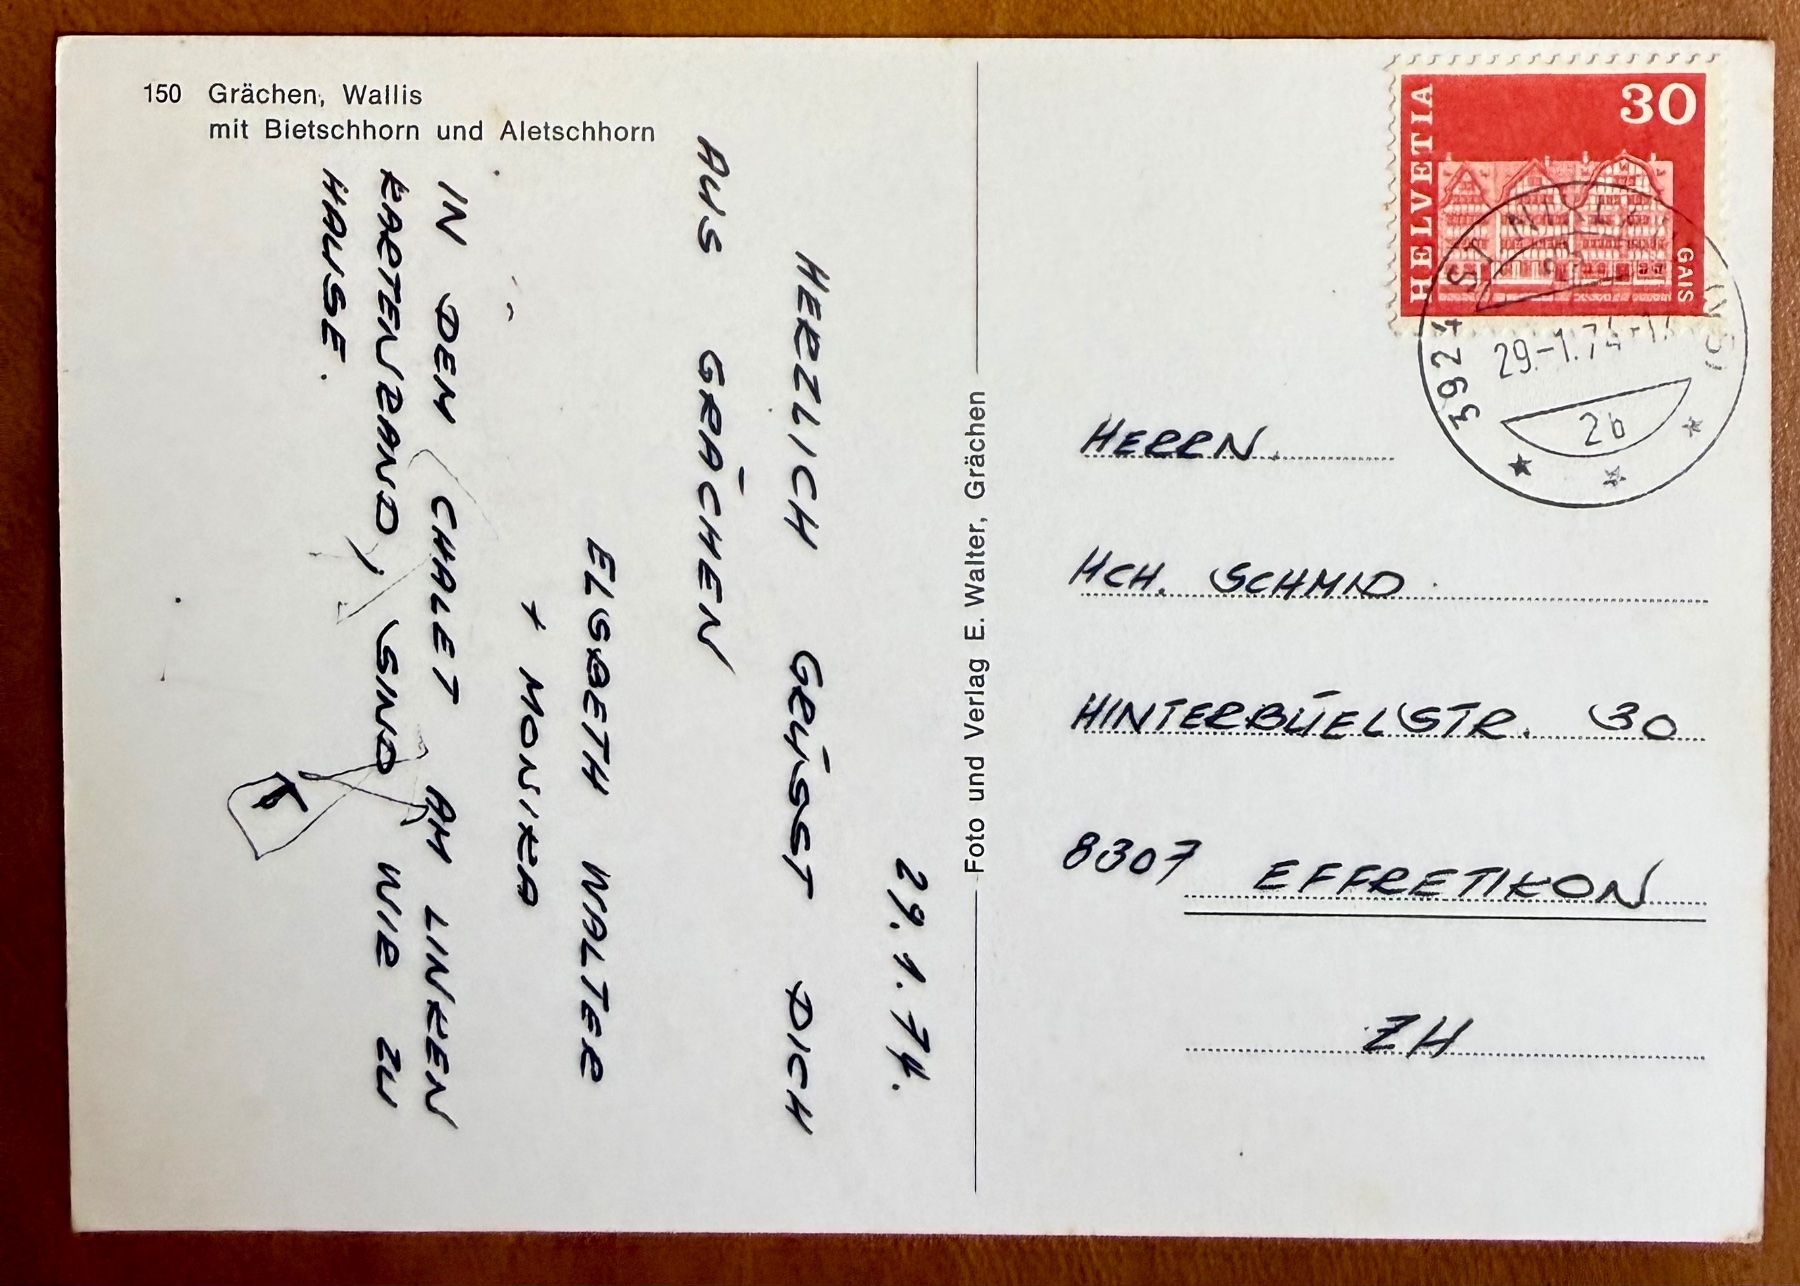 150 Grächen, Wallis
mit Bietschhorn und Aletschhorn
29.1.74.
HERZLICH GRÜSST DICH
AUS GRÄCHEN
ELSBETH WALTER
+ MONIKA
IN DEN CHALET AM LINKEN
KARTENRAND, SIND WIR ZU
HAUSE.
Foto und Verlag E. Walter, Grächen
HELVETIA
30
GAIS
3924 ST. NIKLAUS (VS)
29.-1.74-
2b
HERRN.
HCH. SCHMID
HINTERBÜELSTR. 30
8307 EFFRETIKON
ZH